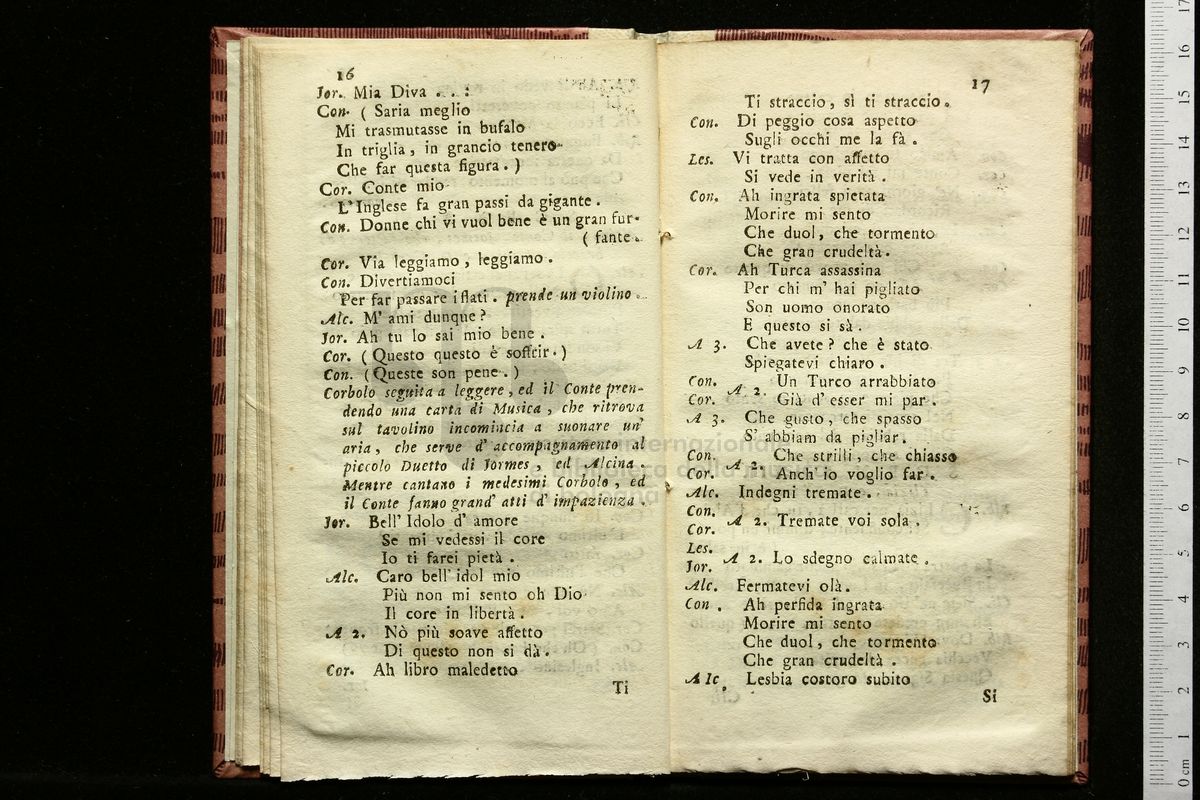 16
Jor. Mia Diva . . . :
Con. ( Saria meglio
Mi trasmutasse in bufalo
In triglia, in grancio tenero
Che far questa figura. )
Cor. Conte mio
L'Inglese fa gran passi da gigante.
Con. Donne chi vi vuol bene è un gran fur-
( fante.
Cor. Via leggiamo, leggiamo.
Con. Divertiamoci
Per far passare i flati. prende un violino.
Alc. M' ami dunque?
Jor. Ah tu lo sai mio bene.
Cor. ( Questo questo è soffrir. )
Con. ( Queste son pene. )
Corbolo seguita a leggere, ed il Conte pren-
dendo una carta di Musica, che ritrova
sul tavolino incomincia a suonare un'
aria, che serve d' accompagnamento al
piccolo Duetto di Jormes, ed Alcina.
Mentre cantano i medesimi Corbolo, ed
il Conte fanno grand' atti d' impazienza.
Jor. Bell' Idolo d' amore
Se mi vedessi il core
Io ti farei pietà.
Alc. Caro bell' idol mio
Più non mi sento oh Dio
Il core in libertà.
A 2. Nò più soave affetto
Di questo non si dà.
Cor. Ah libro maledetto
Ti
17
Ti straccio, sì ti straccio.
Con. Di peggio cosa aspetto
Sugli occhi me la fà.
Les. Vi tratta con affetto
Si vede in verità.
Con. Ah ingrata spietata
Morire mi sento
Che duol, che tormento
Che gran crudeltà.
Cor. Ah Turca assassina
Per chi m' hai pigliato
Son uomo onorato
E questo si sà.
A 3. Che avete? che è stato
Spiegatevi chiaro.
Con. A 2. Un Turco arrabbiato
Cor. Già d' esser mi par.
A 3. Che gusto, che spasso
S' abbiam da pigliar.
Con. A 2. Che strilli, che chiasso
Cor. Anch' io voglio far.
Alc. Indegni tremate.
Con.
Cor. A 2. Tremate voi sola.
Les.
Jor. A 2. Lo sdegno calmate.
Alc. Fermatevi olà.
Con. Ah perfida ingrata
Morire mi sento
Che duol, che tormento
Che gran crudeltà.
Alc. Lesbia costoro subito
Si
internazionale
biblioteca della musica
0 cm 1 2 3 4 5 6 7 8 9 10 11 12 13 14 15 16 17